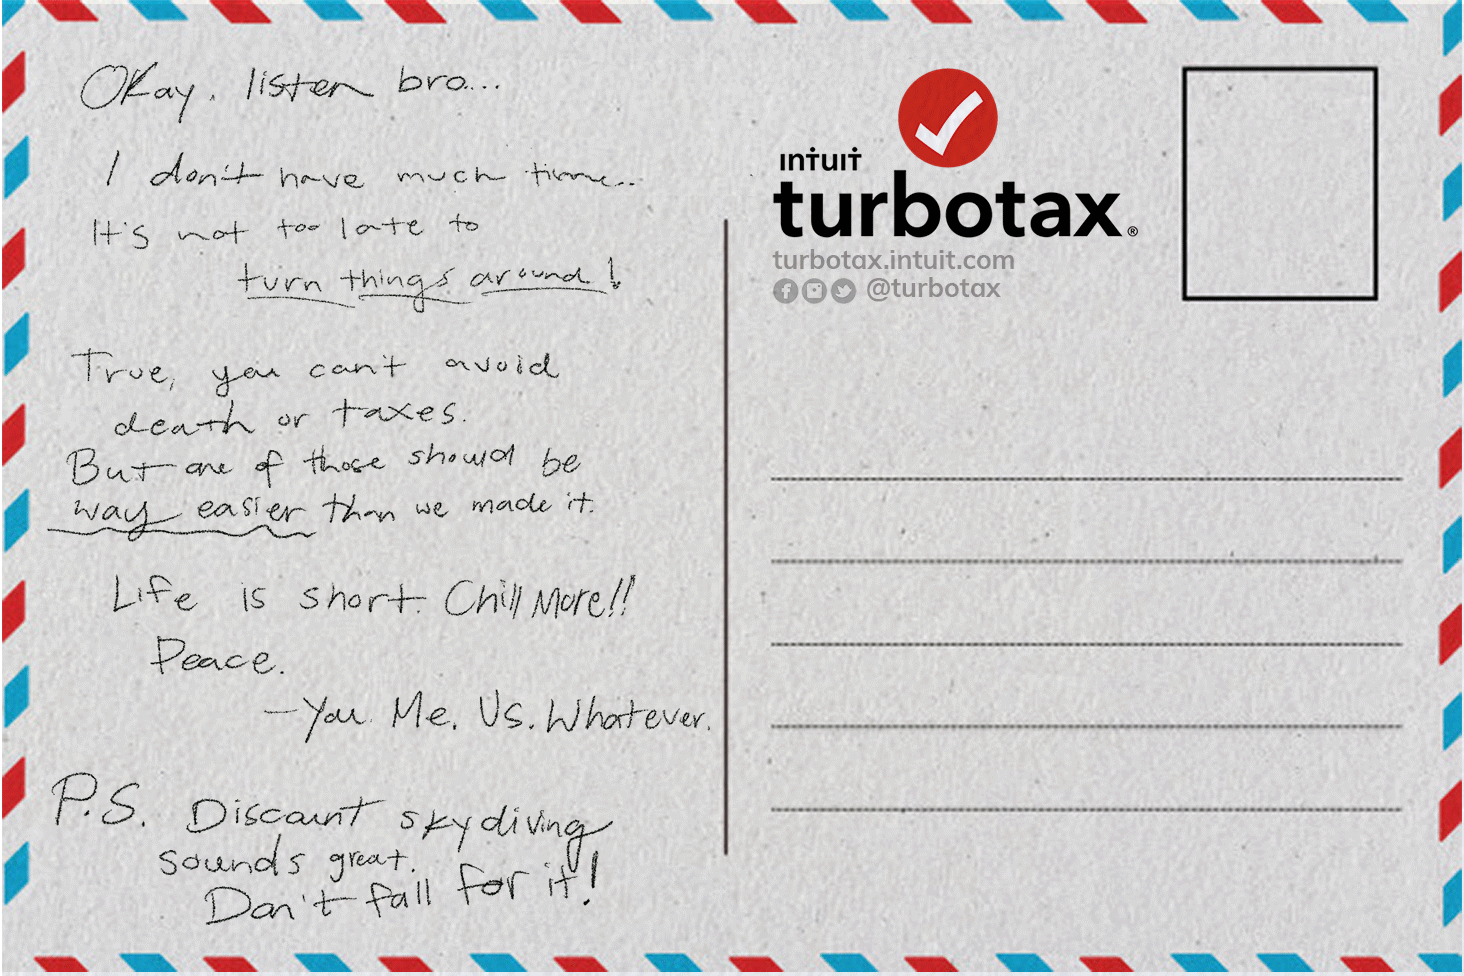 Okay, listen bro...
I don't have much time...
It's not too late to
turn things around!
True, you can't avoid
death or taxes.
But one of those should be
way easier than we made it.
Life is short. Chill More!!
Peace.
—You. Me. Us. Whatever.
P.S. Discount skydiving
sounds great.
Don't fall for it!
intuit
turbotax®
turbotax.intuit.com
@turbotax